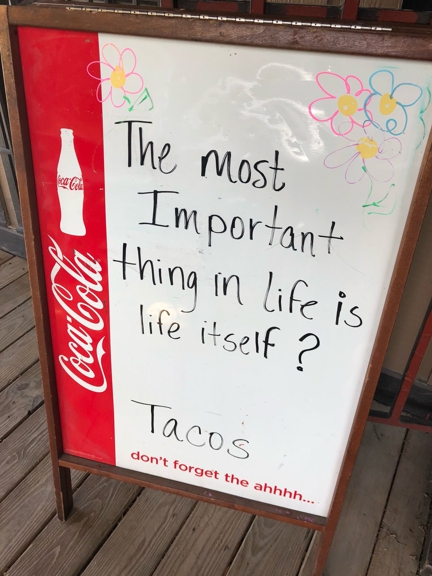 Coca-Cola
Coca-Cola
The most
Important
thing in life is
life itself?
Tacos
don't forget the ahhhh...